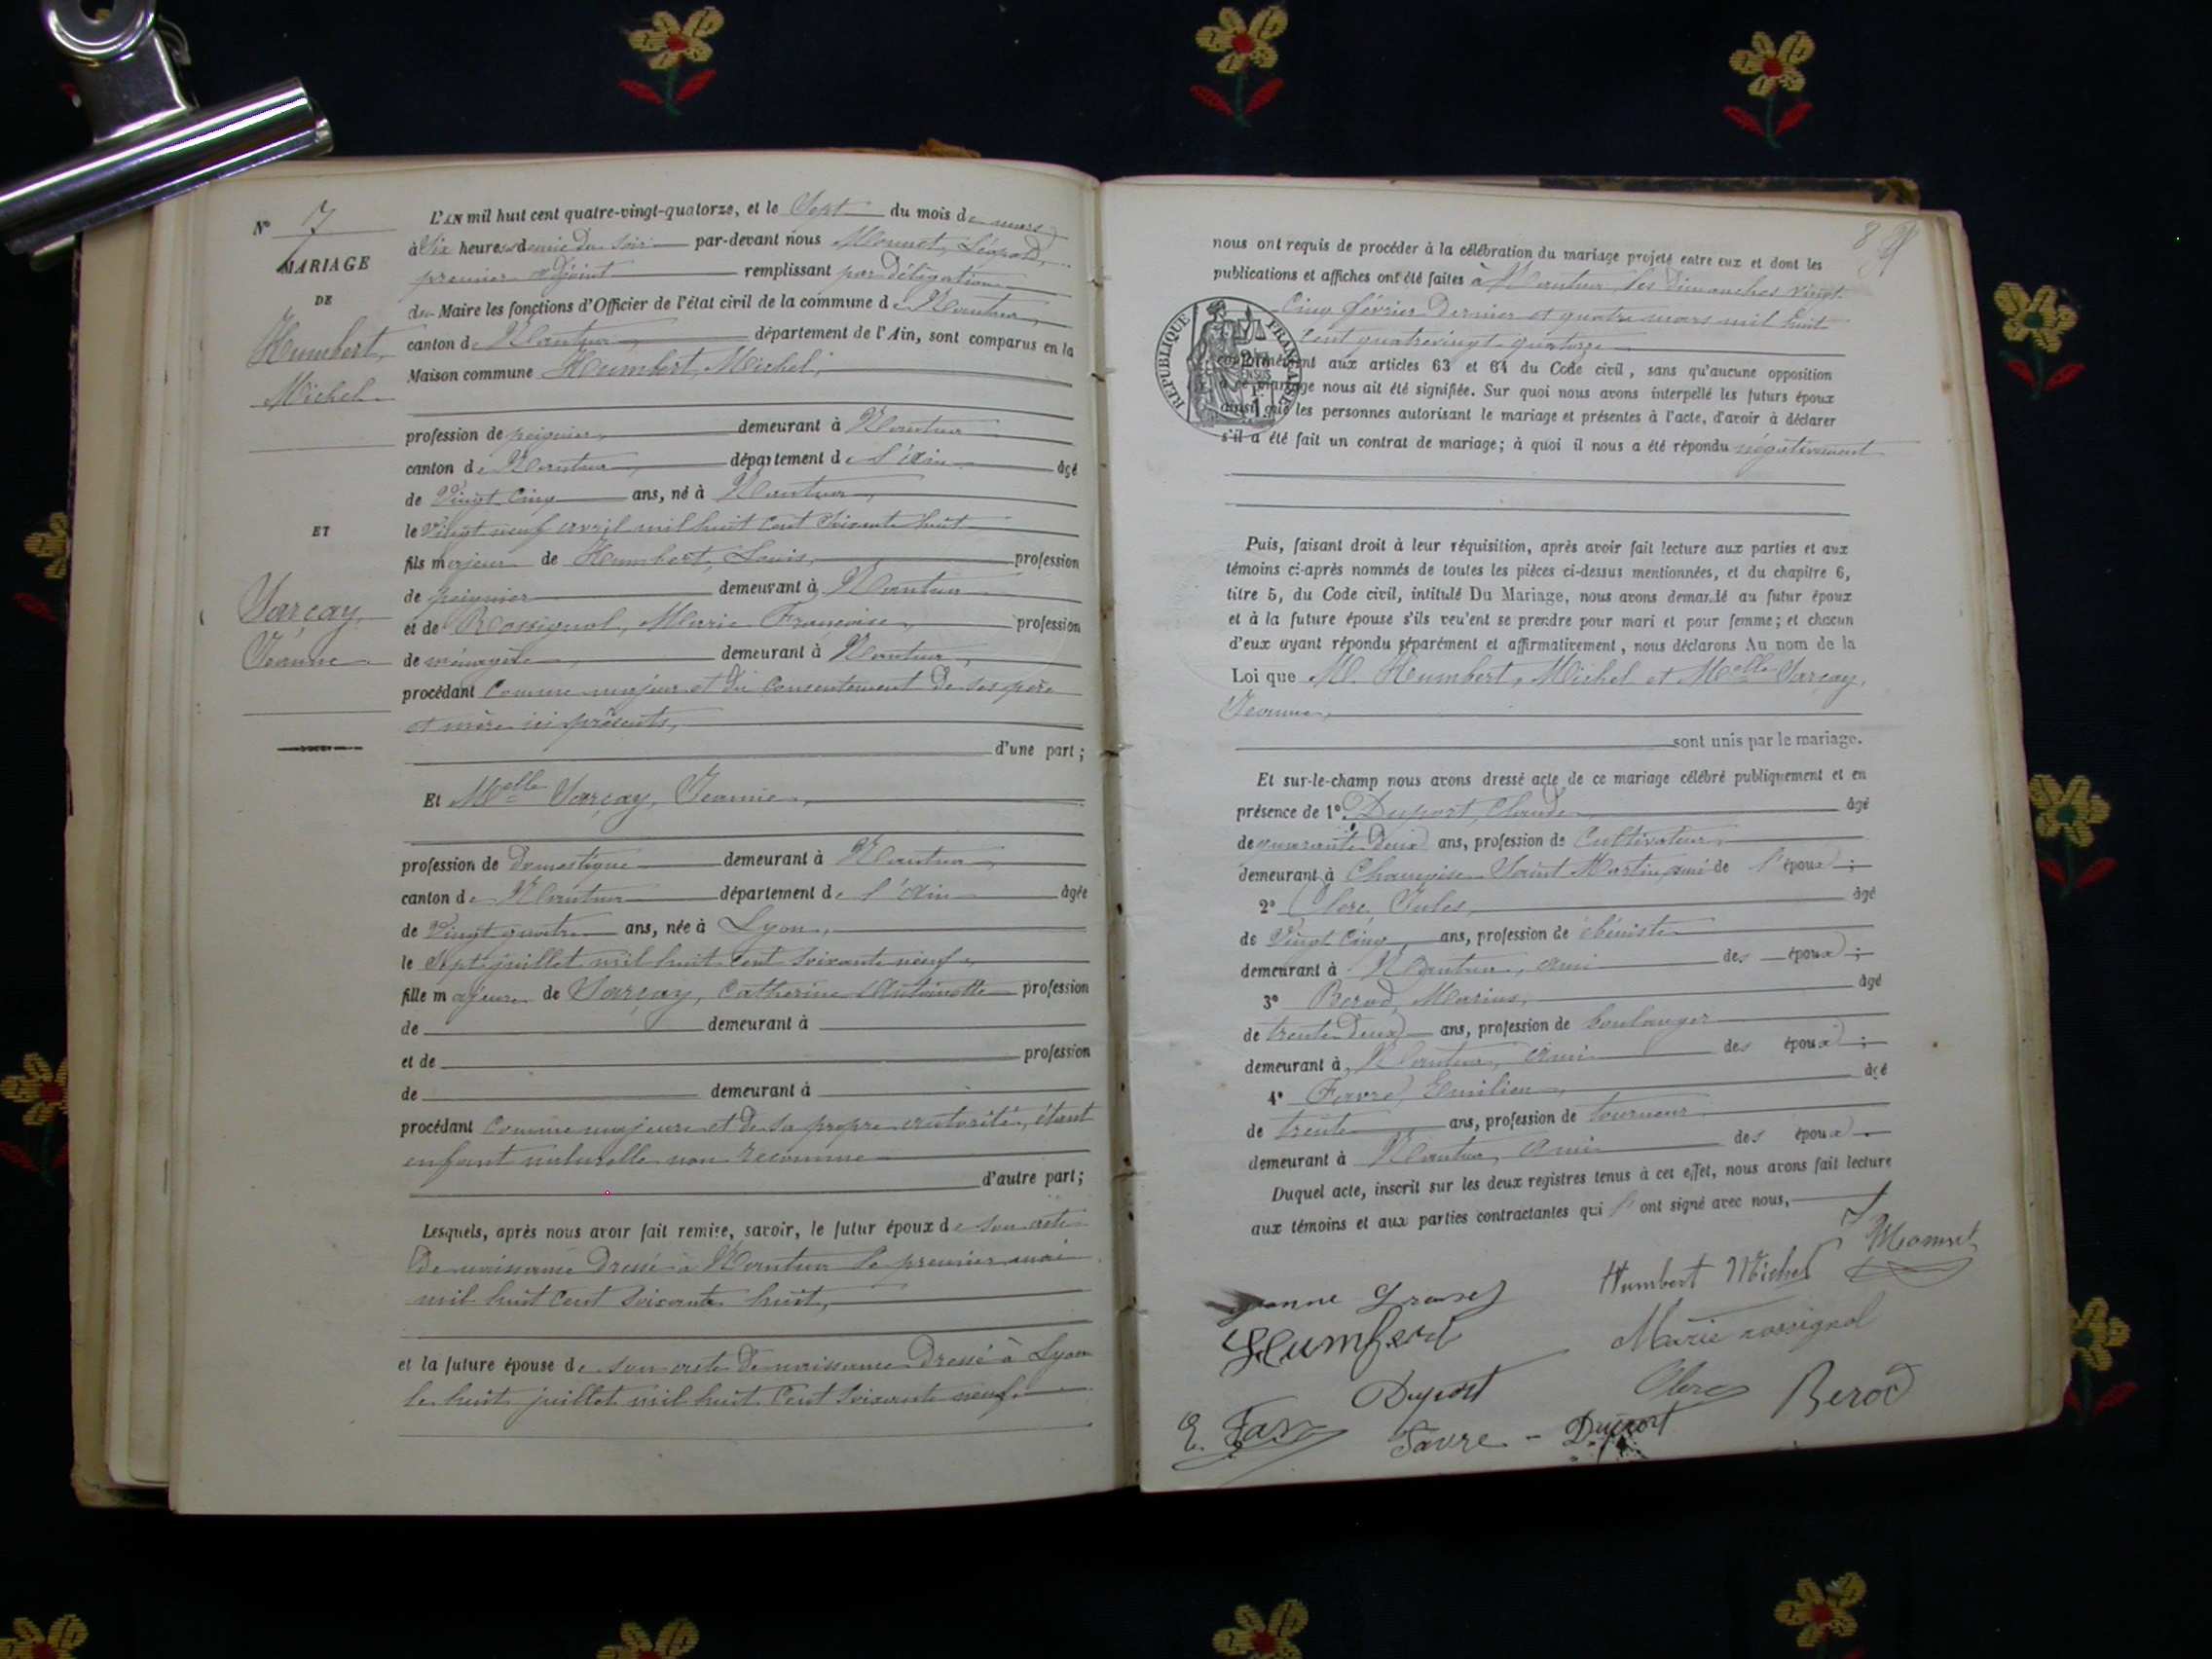 N° 7
MARIAGE
DE
Humbert,
Michel
ET
Sarçay,
Jeanne
L'AN mil huit cent quatre-vingt-quatorze, et le Sept du mois de mars
à Six heures et demie du soir par-devant nous Monnet, Léopold,
premier adjoint remplissant par délégation
du Maire les fonctions d'Officier de l'état civil de la commune de Nantua,
canton de Nantua, département de l'Ain, sont comparus en la
Maison commune Humbert, Michel,
profession de peignier, demeurant à Nantua
canton de Nantua, département de l'Ain âgé
de Vingt cinq ans, né à Nantua,
le Vingt neuf avril mil huit cent soixante huit
fils majeur de Humbert, Louis, profession
de peignier demeurant à Nantua
et de Rossignol, Marie Françoise, profession
de ménagère, demeurant à Nantua,
procédant comme majeur et du consentement de ses père
et mère ici présents,
d'une part;
Et Melle Sarçay, Jeanne,
profession de domestique demeurant à Nantua,
canton de Nantua département de l'Ain âgée
de Vingt quatre ans, née à Lyon,
le Sept juillet mil huit cent soixante neuf,
fille majeure de Sarçay, Catherine Antoinette profession
de demeurant à
et de profession
de demeurant à
procédant comme majeure et de sa propre autorité, étant
enfant naturelle non reconnue
d'autre part;
Lesquels, après nous avoir fait remise, savoir, le futur époux de son acte
de naissance dressé à Nantua le premier mai
mil huit cent soixante huit,
et la future épouse de son acte de naissance dressé à Lyon
le huit juillet mil huit cent soixante neuf.
8
nous ont requis de procéder à la célébration du mariage projeté entre eux et dont les
publications et affiches ont été faites à Nantua les dimanches vingt
cinq février dernier et quatre mars mil huit
cent quatrevingt quatorze
RÉPUBLIQUE FRANÇAISE
conformément aux articles 63 et 64 du Code civil, sans qu'aucune opposition
à ce mariage nous ait été signifiée. Sur quoi nous avons interpellé les futurs époux
ainsi que les personnes autorisant le mariage et présentes à l'acte, d'avoir à déclarer
s'il a été fait un contrat de mariage; à quoi il nous a été répondu négativement
Puis, faisant droit à leur réquisition, après avoir fait lecture aux parties et aux
témoins ci-après nommés de toutes les pièces ci-dessus mentionnées, et du chapitre 6,
titre 5, du Code civil, intitulé Du Mariage, nous avons demandé au futur époux
et à la future épouse s'ils veulent se prendre pour mari et pour femme; et chacun
d'eux ayant répondu séparément et affirmativement, nous déclarons Au nom de la
Loi que M. Humbert, Michel et Melle Sarçay,
Jeanne,
sont unis par le mariage.
Et sur-le-champ nous avons dressé acte de ce mariage célébré publiquement et en
présence de 1° Duport, Claude, âgé
de quarante deux ans, profession de Cultivateur,
demeurant à Saint Martin, ami de l'époux;
2° Clerc, Jules, âgé
de Vingt cinq, ans, profession de ébéniste
demeurant à Nantua, ami des époux;
3° Berod, Marius, âgé
de trente deux ans, profession de boulanger
demeurant à Nantua, ami des époux;
4° Favre, Emilien, âgé
de trente ans, profession de tourneur
demeurant à Nantua, ami des époux.
Duquel acte, inscrit sur les deux registres tenus à cet effet, nous avons fait lecture
aux témoins et aux parties contractantes qui l'ont signé avec nous,
Humbert Michel Monnet
Humbert
Marie rossignol
Duport Clerc Berod
E. Favre Favre - Duport